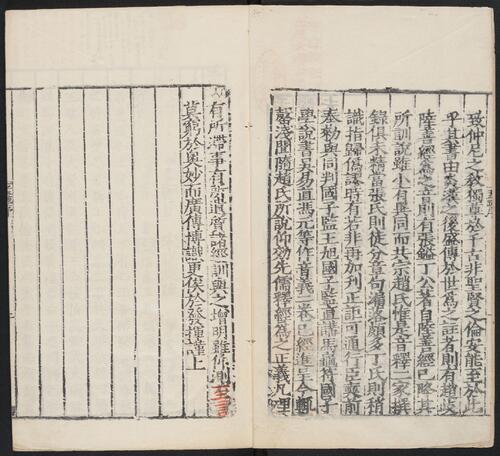 致仲尼之教獨尊於千古非聖賢之倫安能至於此
乎其書由炎漢之後盛傳於世爲之註者則有趙岐
陸善經爲之音則有張鎰丁公著自陸善經已降其
所訓說雖小有異同而共宗趙氏惟是音釋二家撰
錄俱未精當張氏則徒分章句漏落頗多丁氏則稍
識指歸僞謬時有若非再加刊正詎可通行臣奭前
奉勑與同判國子監王旭國子監直講馬龜符國子
學說書吳易直馮元等作音義二卷已經進呈今輒
罄淺聞隨趙氏所說仰効先儒釋經爲之正義凡理
有所滯事有所遺質諸經訓與之增明雖仰測至言
莫窮於奧妙而廣傳博識更俟於發揮謹上